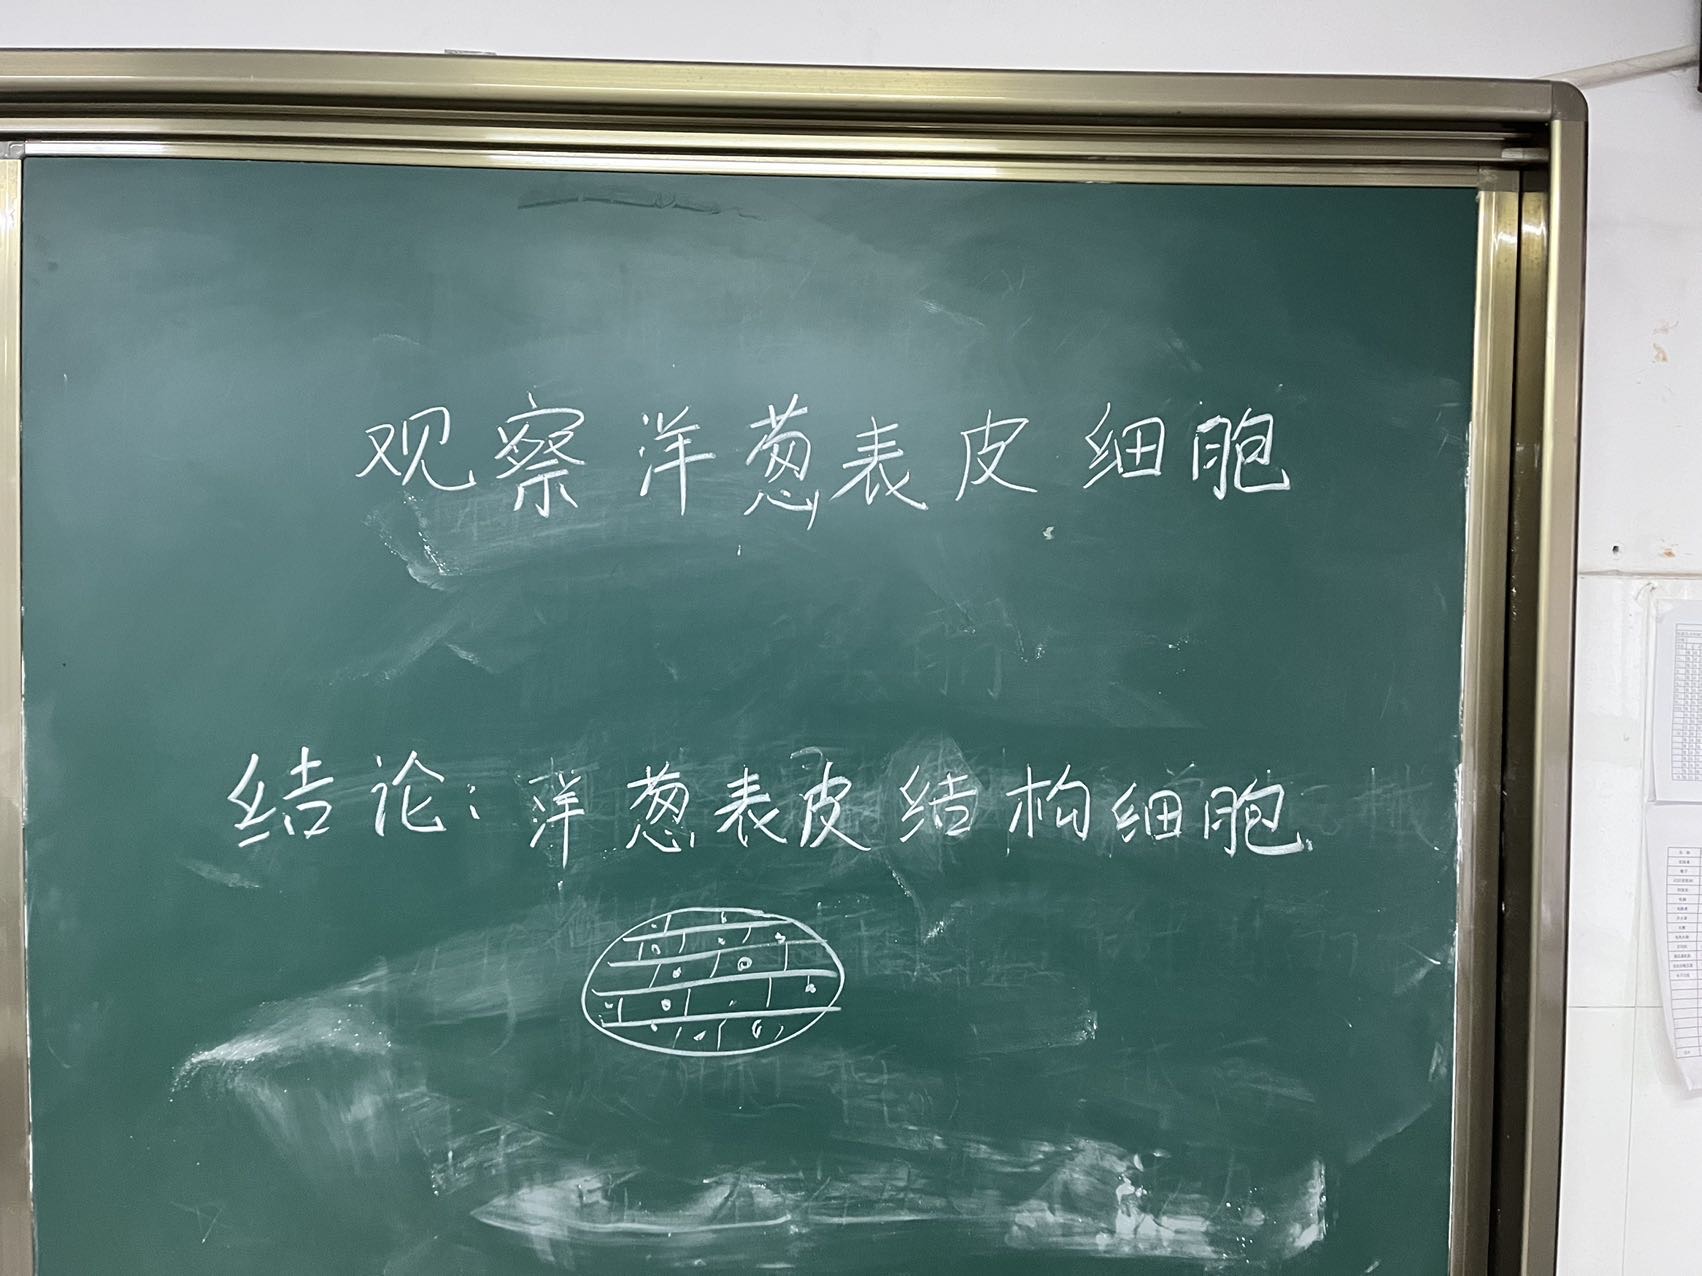 观察洋葱表皮细胞
结论：洋葱表皮结构细胞